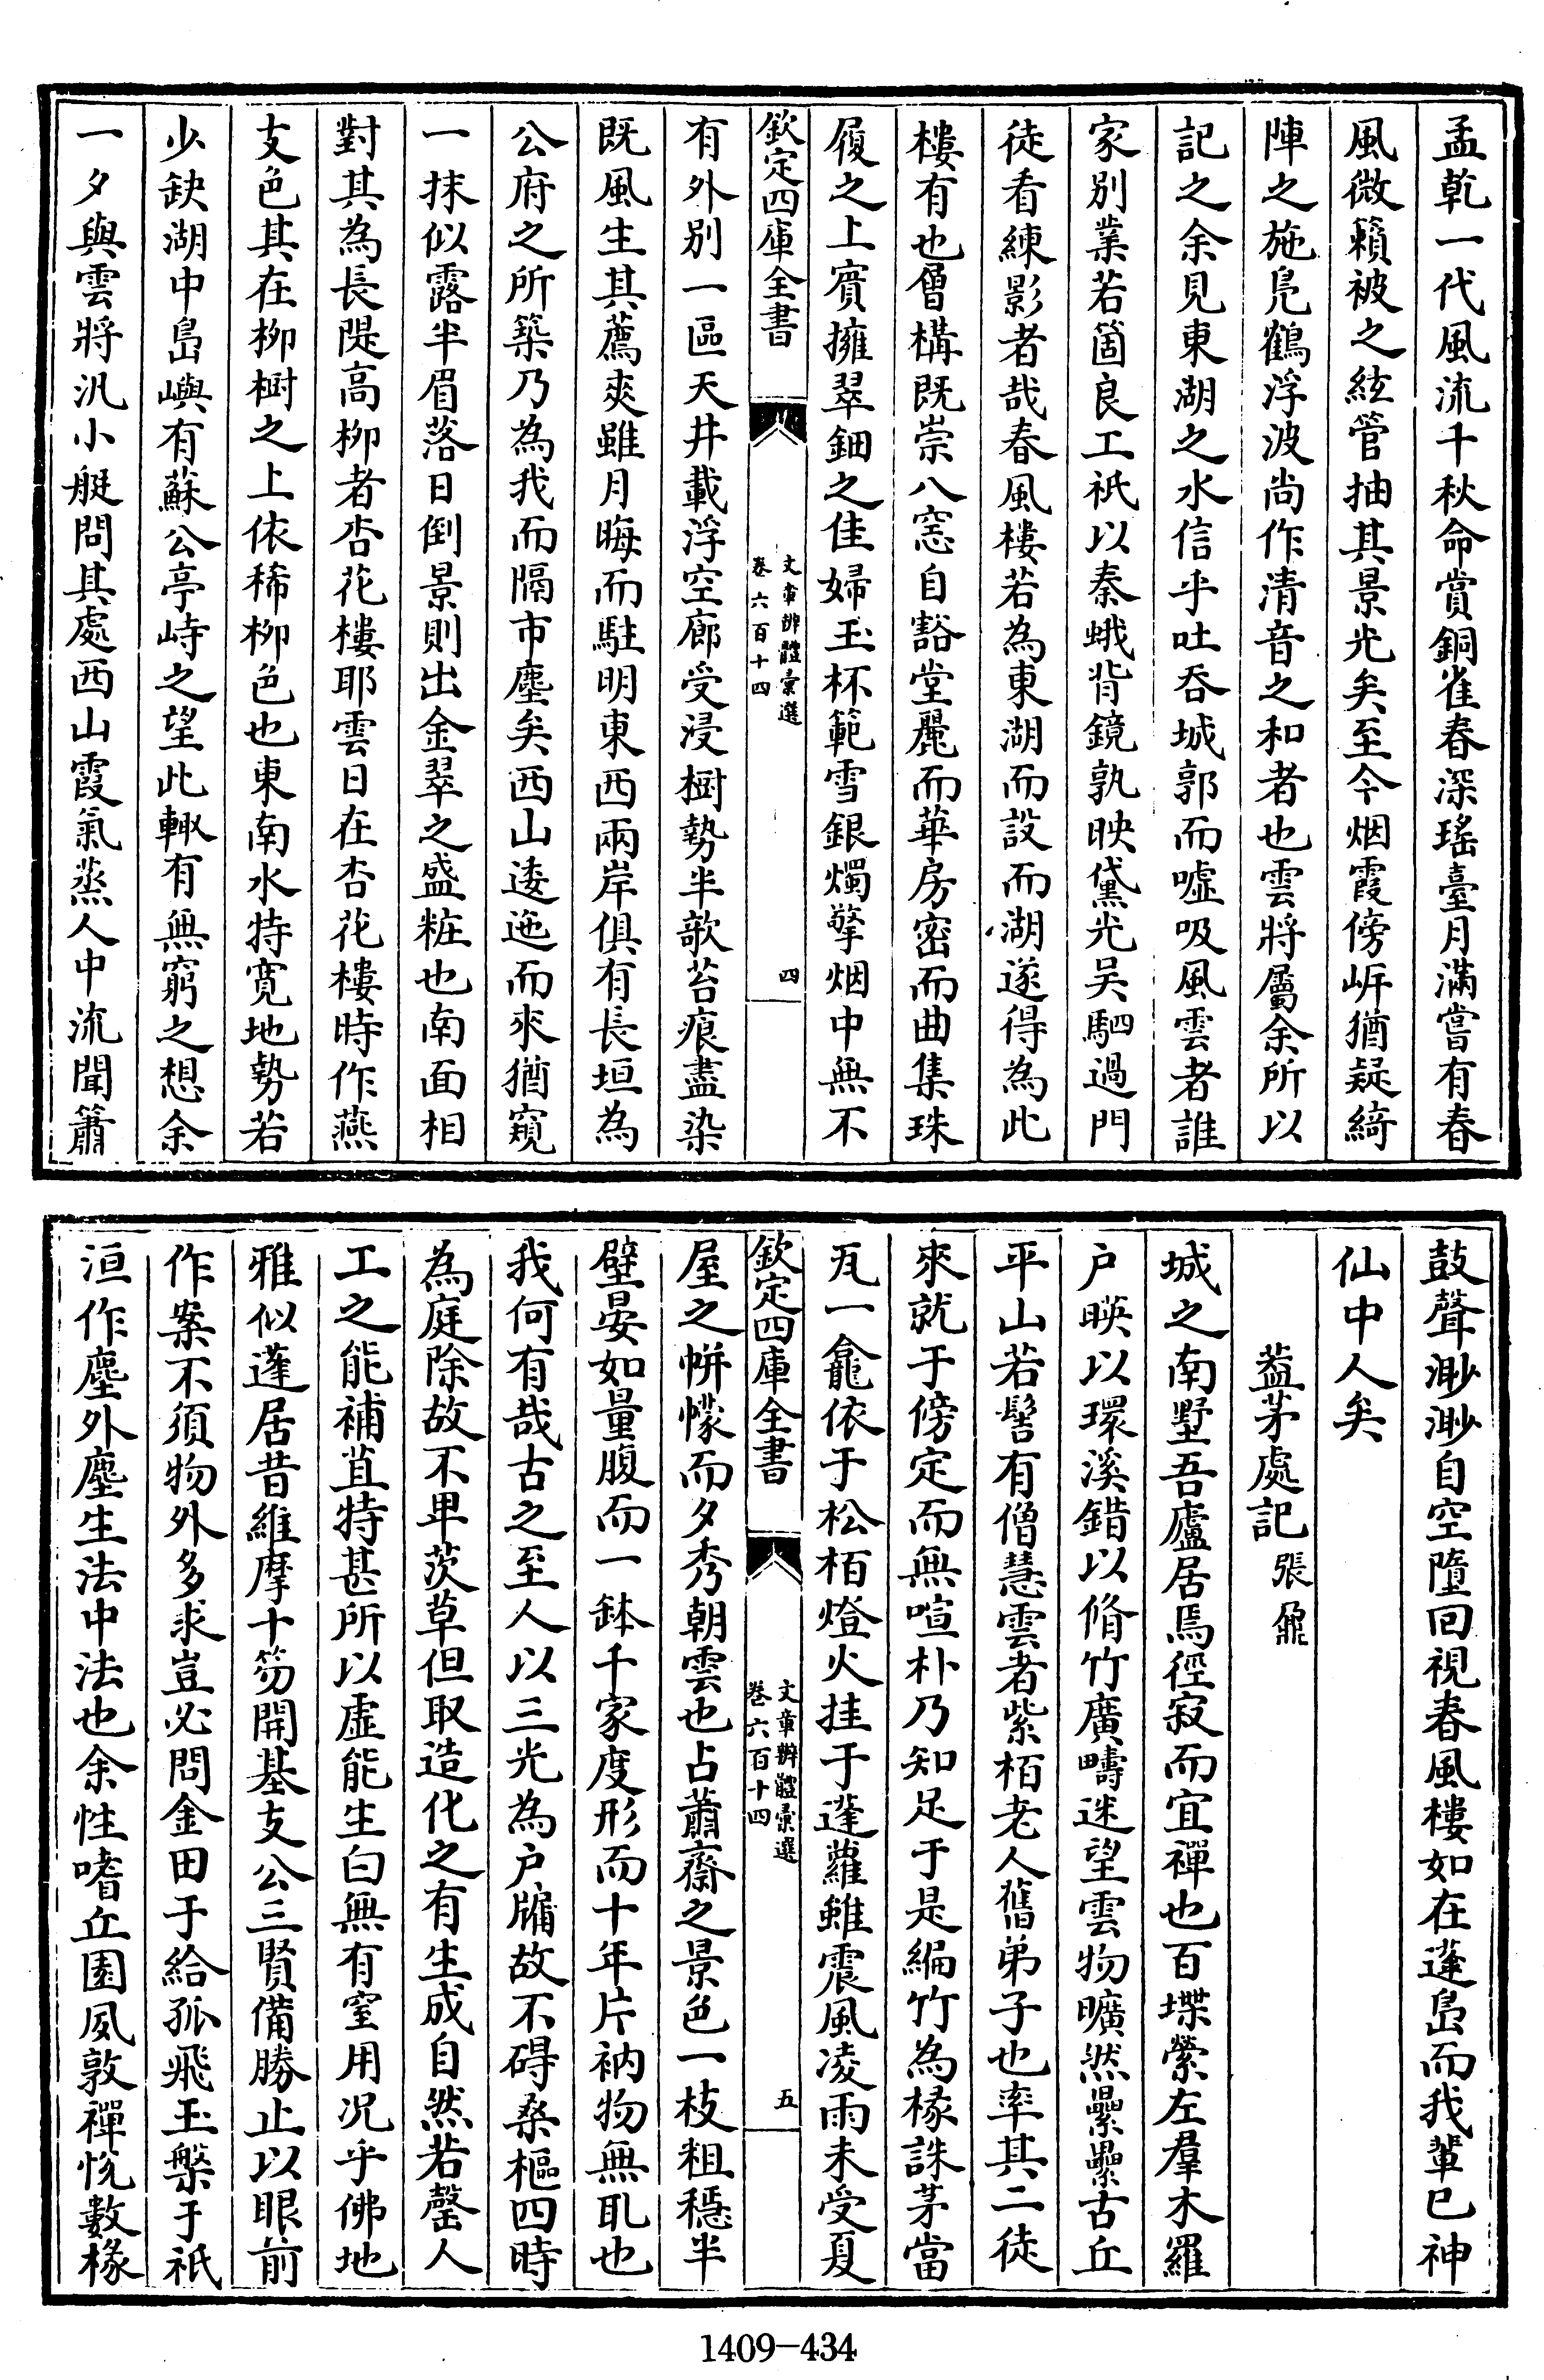 孟乾一代風流千秋命賞銅雀春深瑤臺月滿嘗有春
風微籟被之絃管抽其景光矣至今烟霞傍岍猶疑綺
陣之施鳬鶴浮波尚作清音之和者也雲將屬余所以
記之余見東湖之水信乎吐呑城郭而噓吸風雲者誰
家別業若箇良工祇以秦蛾背鏡孰映黛光吳駟過門
徒看練影者哉春風樓若為東湖而設而湖遂得為此
樓有也層構既崇八窓自豁堂麗而華房密而曲集珠
履之上賓擁翠鈿之佳婦玉杯範雪銀燭擎烟中無不
欽定四庫全書
文章辨體彙選
卷六百十四
四
有外別一區天井載浮空廊受浸樹勢半欹苔痕盡染
既風生其薦爽雖月晦而駐明東西兩岸俱有長垣為
公府之所築乃為我而隔市塵矣西山逶迤而來猶窺
一抹似露半眉落日倒景則出金翠之盛粧也南面相
對其為長隄高柳者杏花樓耶雲日在杏花樓時作燕
支色其在柳樹之上依稀柳色也東南水特寛地勢若
少缺湖中島嶼有蘇公亭峙之望此輙有無窮之想余
一夕與雲將汎小艇問其處西山霞氣蒸人中流聞簫
鼓聲渺渺自空墮回視春風樓如在蓬島而我輩已神
仙中人矣
葢茅處記張鼐
城之南墅吾廬居焉徑寂而宜禪也百堞縈左羣木羅
户暎以環溪錯以脩竹廣疇迷望雲物曠然纍纍古丘
平山若髻有僧慧雲者紫栢老人舊弟子也率其二徒
來就于傍定而無喧朴乃知足于是編竹為椽誅茅當
瓦一龕依于松栢燈火挂于蓬蘿雖震風凌雨未受夏
欽定四庫全書
文章辨體彙選
卷六百十四
五
屋之帲幪而夕秀朝雲也占蕭齋之景色一枝粗穩半
壁晏如量腹而一鉢千家度形而十年片衲物無耴也
我何有哉古之至人以三光為户牖故不碍桑樞四時
為庭除故不卑茨草但取造化之有生成自然若罄人
工之能補苴特甚所以虛能生白無有室用况乎佛地
雅似蓬居昔維摩十笏開基支公三賢備勝止以眼前
作案不須物外多求豈必問金田于給孤飛玉槃于祇
洹作塵外塵生法中法也余性嗜丘園夙敦禪悅數椽
1409-434